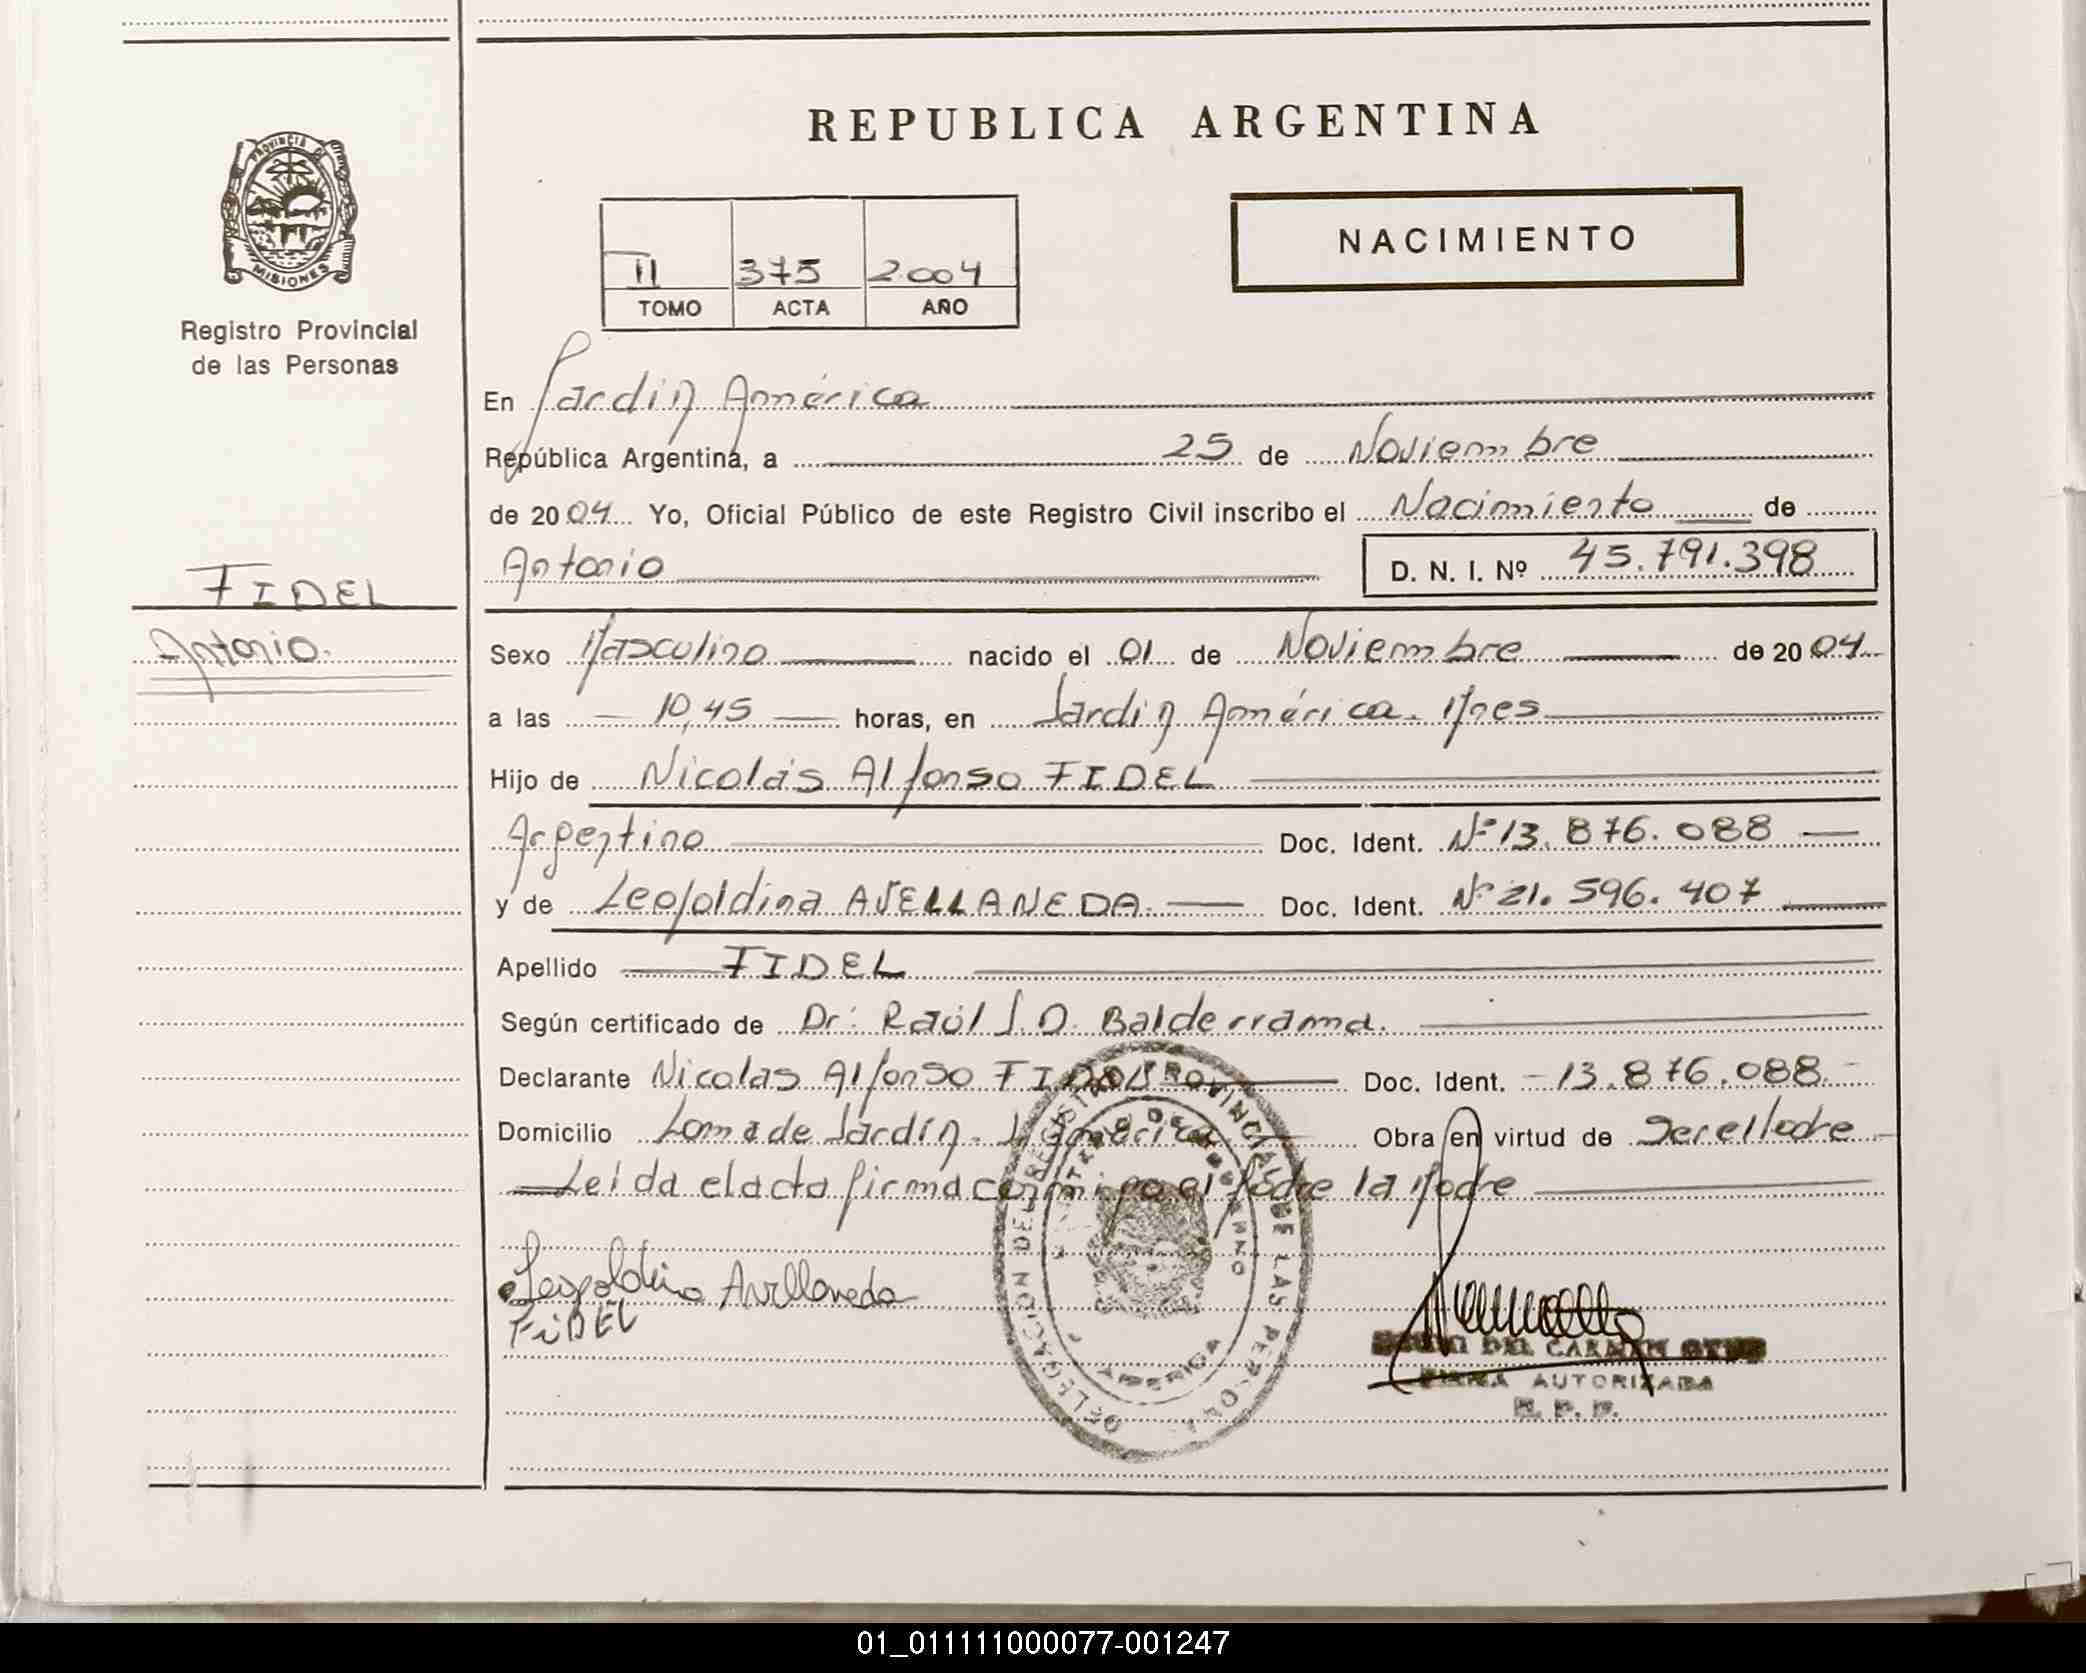 REPUBLICA ARGENTINA
PROVINCIA DE
MISIONES
Registro Provincial
de las Personas
II 375 2004
TOMO ACTA AÑO
NACIMIENTO
En Jardin América
República Argentina, a 25 de Noviembre
de 2004 Yo, Oficial Público de este Registro Civil inscribo el Nacimiento de
Antonio D. N. I. Nº 45.791.398
FIDEL
Antonio.
Sexo Masculino nacido el 01 de Noviembre de 2004
a las 10,45 horas, en Jardin América. Mnes
Hijo de Nicolás Alfonso FIDEL
Argentino Doc. Ident. Nº 13.876.088
y de Leopoldina AVELLANEDA. Doc. Ident. Nº 21.596.407
Apellido FIDEL
Según certificado de Dr: Raúl J.O. Balderrama.
Declarante Nicolas Alfonso FIDEL Doc. Ident. 13.876.088.
Domicilio Loma de Jardín. J. América Obra en virtud de Ser el Padre
Leida el acta firma conmigo el Padre la Madre
Leopoldina Avellaneda
FiDEL
DELEGACION DEL REGISTRO PROVINCIAL DE LAS PERSONAS
AMERICA
DEL CARMEN
FIRMA AUTORIZADA
R. P. P.
01_011111000077-001247